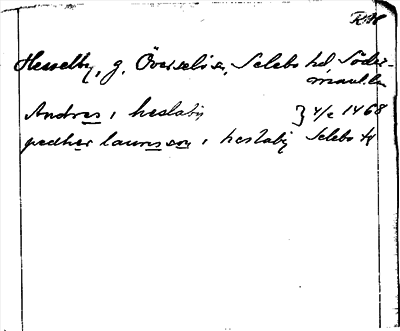 RA
Hesselby, g. Överselö sn, Selebo hd Söder-
manland
Andres i heslaby } 4/2 1468
pedher laurisson i heslaby Selebo H